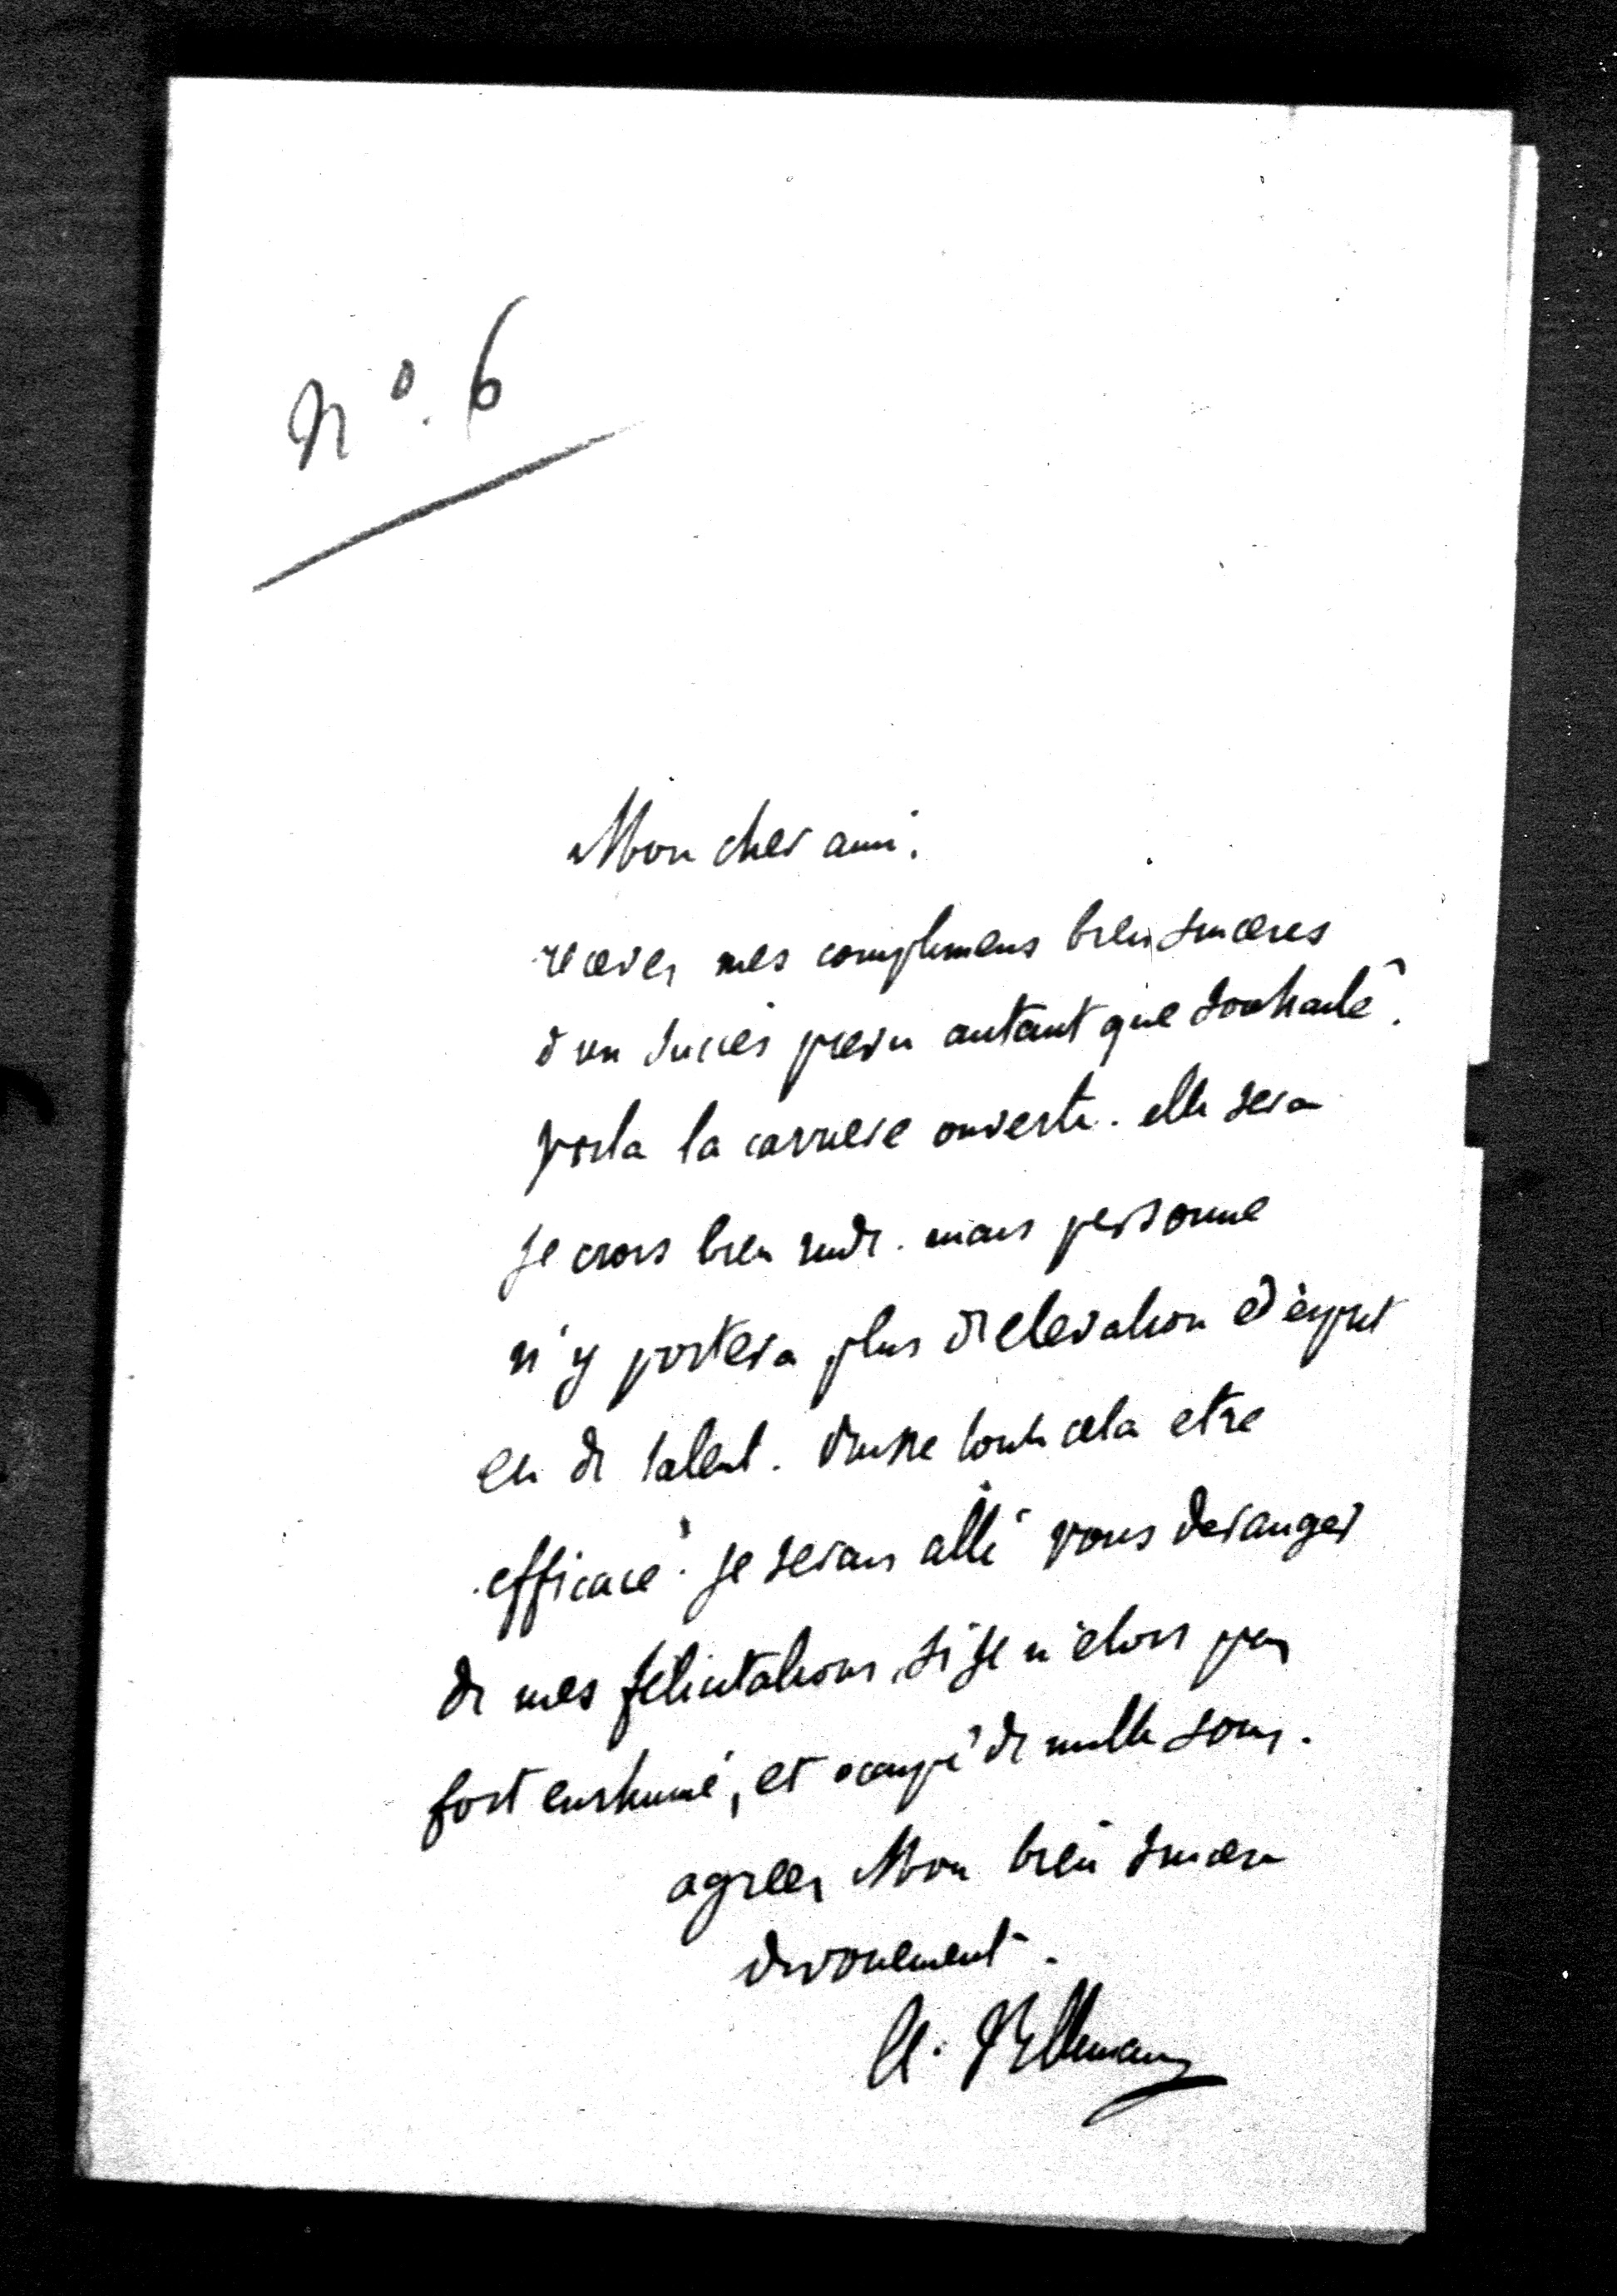 N°. 6
Mon cher ami.
recevez mes complimens bien sinceres
d'un succès prevu autant que souhaité.
voila la carriere ouverte. elle sera
je crois bien rude. mais personne
n'y portera plus d'elevation d'esprit
et de talent. Puisse tout cela etre
efficace. je serais allé vous deranger
de mes félicitations, si je n'etois pas
fort enrhumé, et occupé de mille soins.
agreez Mon bien sincere
devouement.
A.